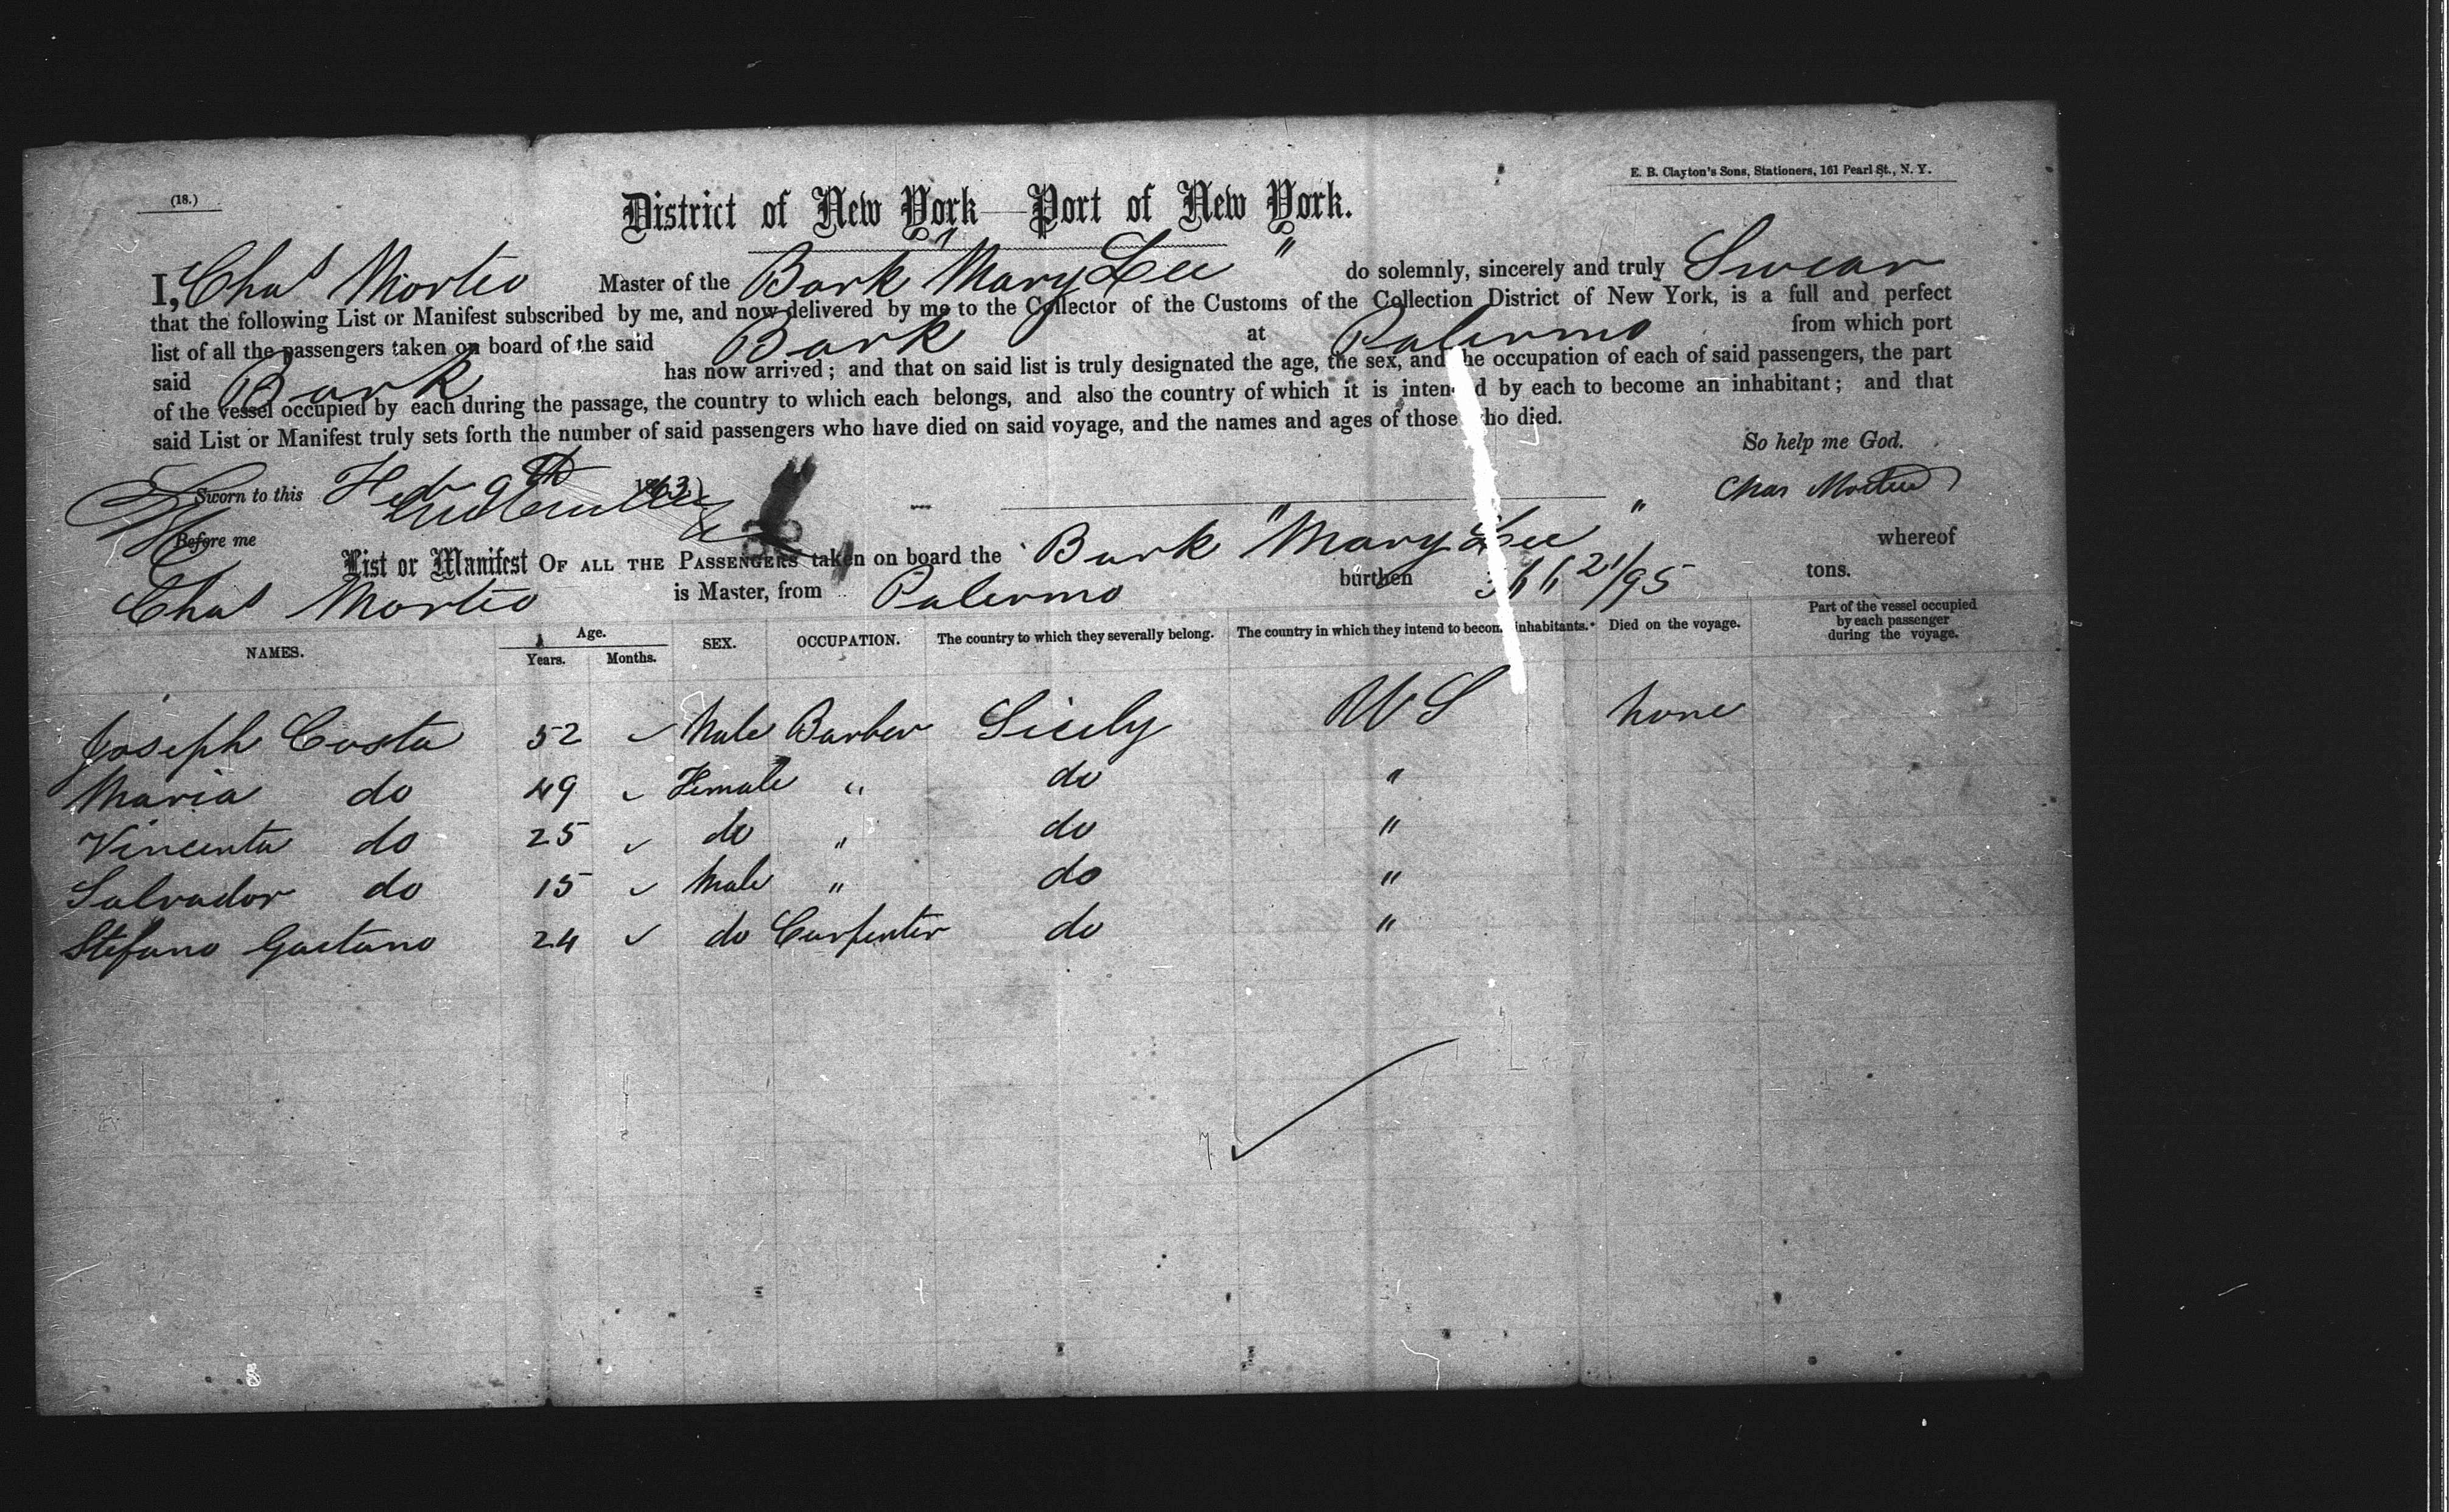 (18.)
E. B. Clayton's Sons, Stationers, 161 Pearl St., N. Y.
District of New York—Port of New York.
I, Chas Morteo Master of the Bark "Mary Lee" do solemnly, sincerely and truly Swear
that the following List or Manifest subscribed by me, and now delivered by me to the Collector of the Customs of the Collection District of New York, is a full and perfect
list of all the passengers taken on board of the said Bark at Palermo from which port
said Bark has now arrived; and that on said list is truly designated the age, the sex, and the occupation of each of said passengers, the part
of the vessel occupied by each during the passage, the country to which each belongs, and also the country of which it is intend d by each to become an inhabitant; and that
said List or Manifest truly sets forth the number of said passengers who have died on said voyage, and the names and ages of those who died.
So help me God.
Sworn to this Feb 9th 1863 Chas Morteo
Before me
List or Manifest OF ALL THE PASSENGERS taken on board the Bark "Mary Lee" whereof
Chas Morteo is Master, from Palermo burthen 366 21/95 tons.
NAMES. Age. Years. Months. SEX. OCCUPATION. The country to which they severally belong. The country in which they intend to become inhabitants. Died on the voyage. Part of the vessel occupied by each passenger during the voyage.
Joseph Costa 52 Male Barber Sicily US none
Maria do 49 Female " do "
Vincenta do 25 do " do "
Salvador do 15 Male " do "
Stefano Gaetano 24 do Carpenter do "